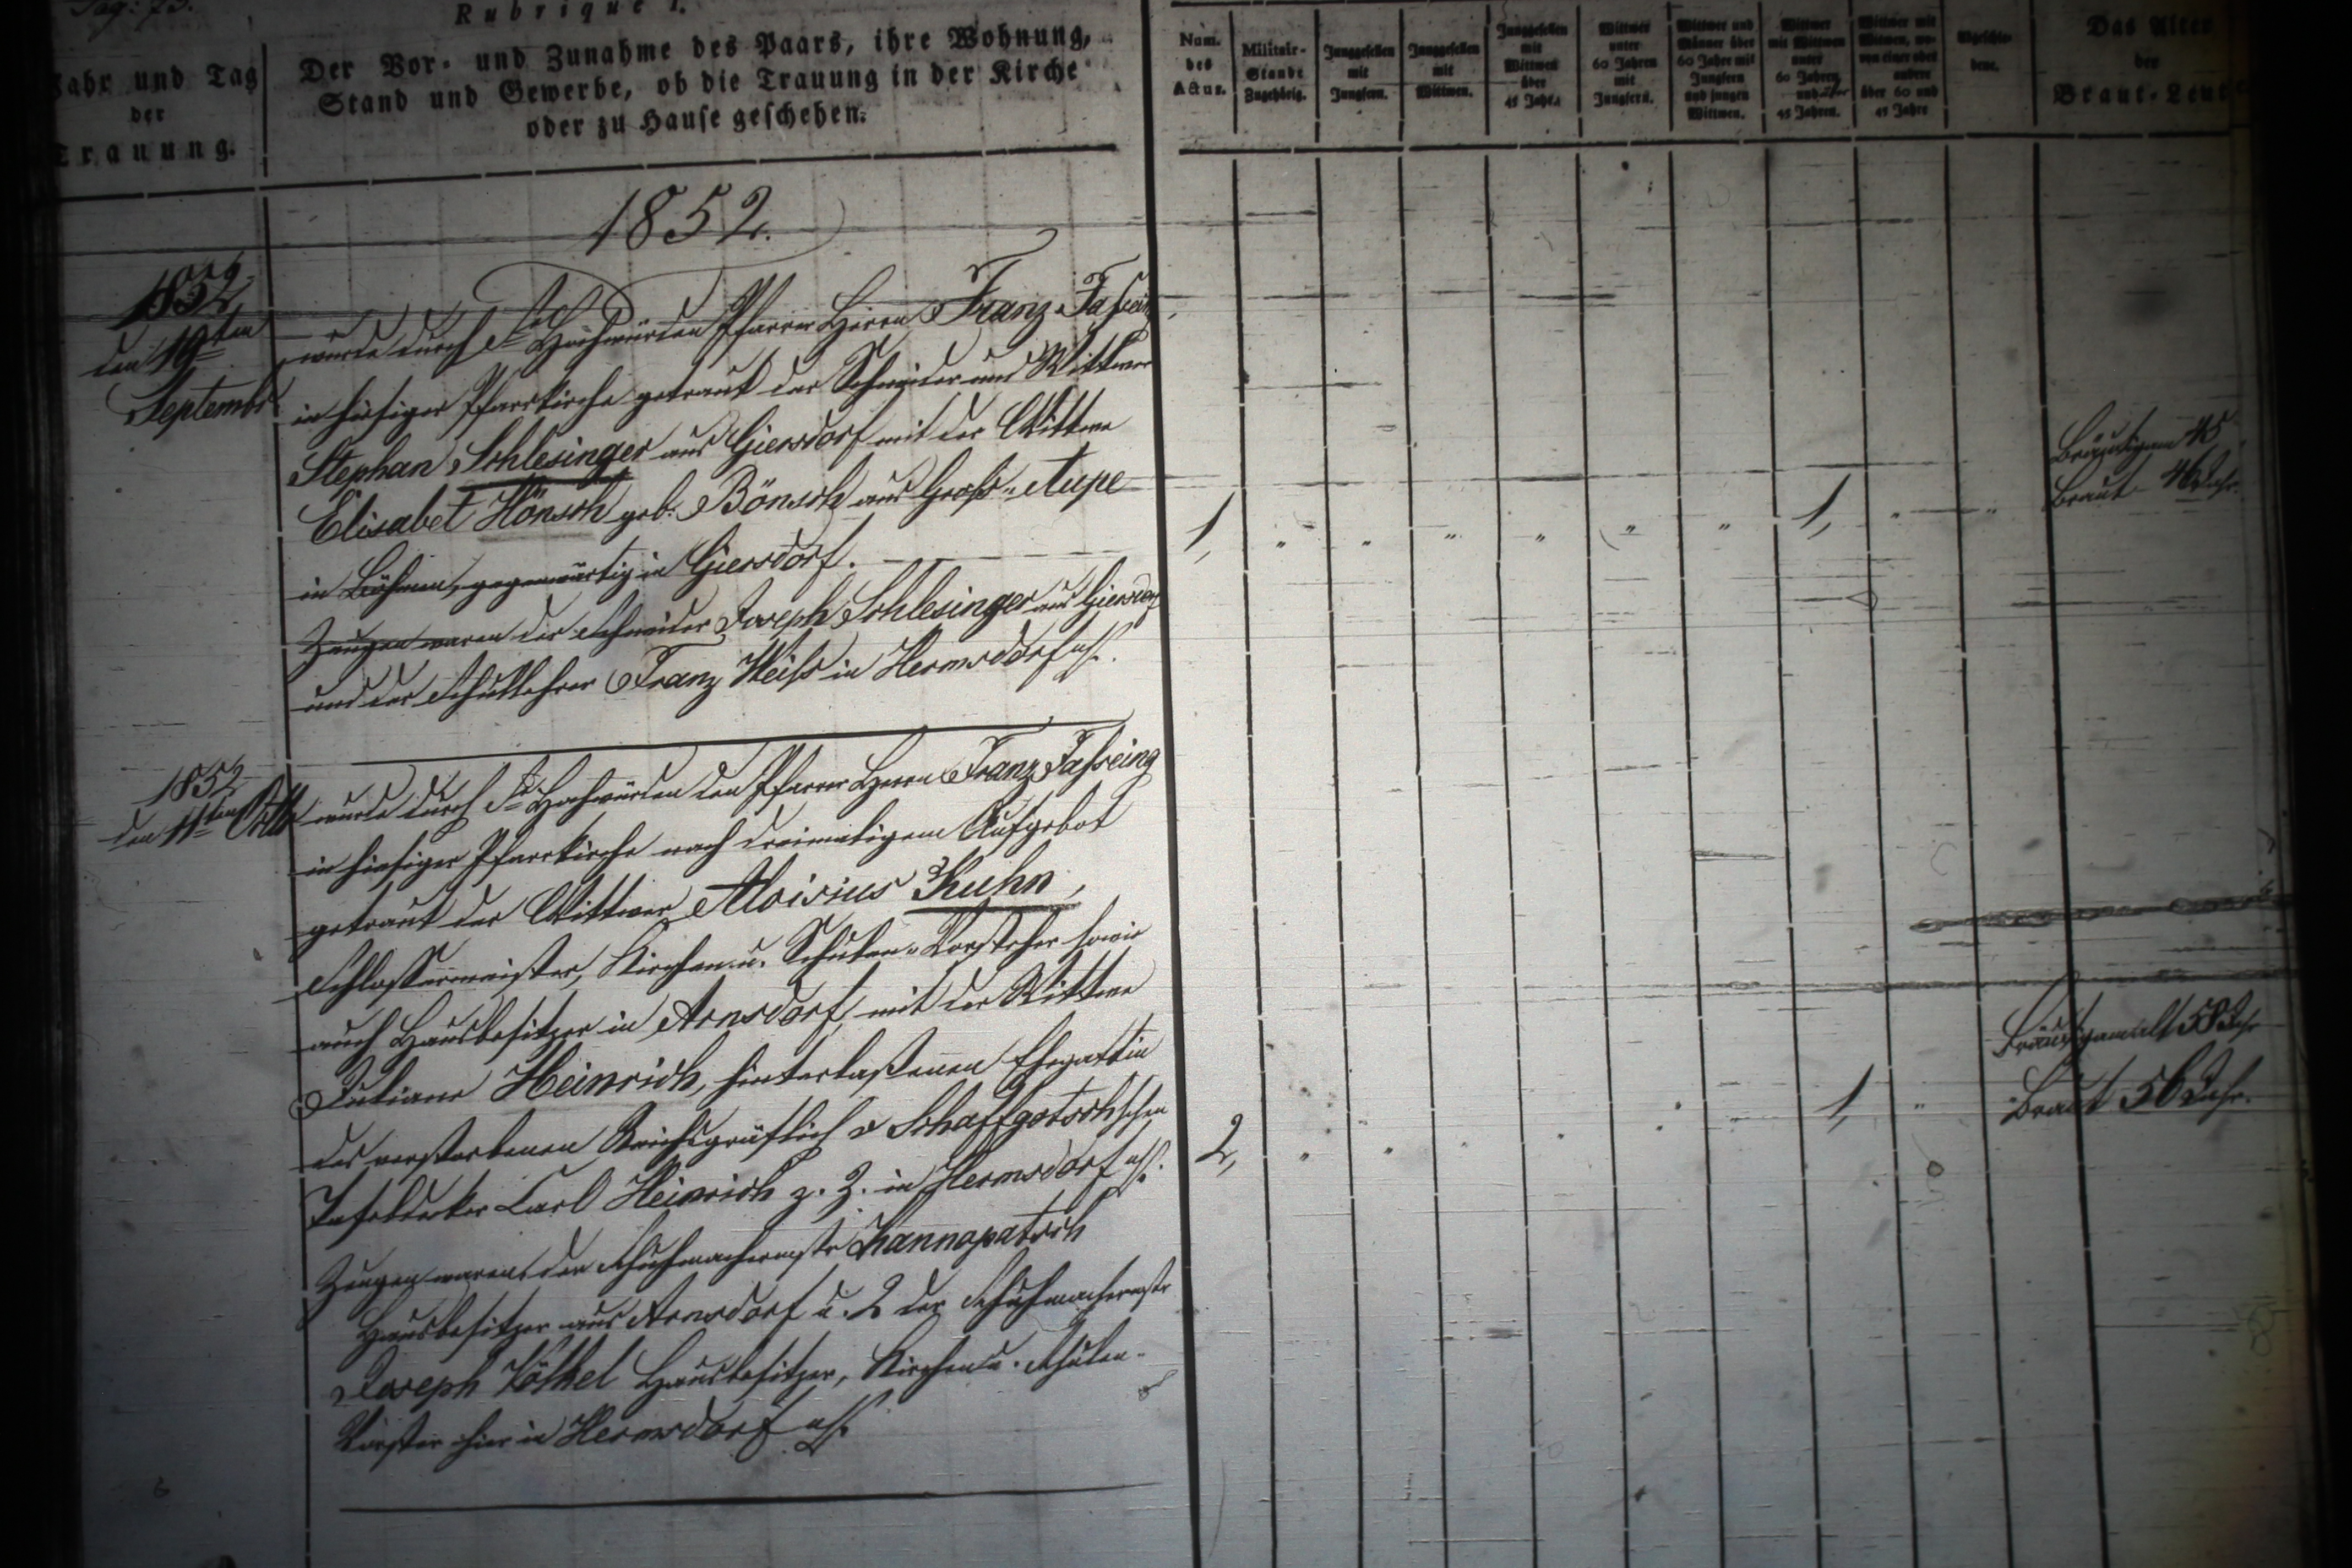 Pag: 73.
Rubrique I.
Jahr und Tag
der
Trauung.
Der Vor- und Zunahme des Paars, ihre Wohnung,
Stand und Gewerbe, ob die Trauung in der Kirche
oder zu Hause geschehen.
Num.
des
Actus.
Militair-
Stande
Zugehörig.
Junggesellen
mit
Jungfern.
Junggesellen
mit
Wittwen.
Junggesellen
mit
Wittwen
über
45 Jahr.
Wittwer
unter
60 Jahren
mit
Jungfern.
Wittwer und
Männer über
60 Jahr mit
Jungfern
und jungen
Wittwen.
Wittwer
mit Wittwen
unter
60 Jahren
und über
45 Jahren.
Wittwer mit
Witwen, wo-
von einer oder
andere
über 60 und
45 Jahre
Geschie-
dene.
Das Alter
der
Braut-Leute
1852.
1852
den 19ten
September
wurde durch Sr Hochwürden Pfarrer Herrn Franz
in hiesiger Pfarrkirche getraut der Schneider und Wittwer
Stephan Schlesinger aus Giersdorf mit der Wittwe
Elisabet Hönsch geb. Bönsch aus Groß-Aupe
in Böhmen, gegenwärtig in Giersdorf.
Zeugen waren der Schneider Joseph Schlesinger aus Giersdorf
und der Schullehrer Franz Weiß in Hermsdorf u/K.
1, " " " " " " 1, " "
Bräutigam 45
Braut 46 Jahr.
1852
den 11ten Octbr
wurde durch Sr Hochwürden den Pfarrer Herrn Franz Tasseing
in hiesiger Pfarrkirche nach dreimaligem Aufgebot
getraut der Wittwer Aloisius Kuhn,
Schlossermeister, Kirchen u. Schulen-Vorsteher sowie
auch Hausbesitzer in Arnsdorf, mit der Wittwe
Juliane Heinrich, hinterlaßenen Ehegattin
des verstorbenen Reichsgräflich v Schaffgotschschen
Tafeldecker Carl Heinrich z. Z. in Hermsdorf u/K.
Zeugen waren, der Schuhmachermstr Hannapatsch
Hausbesitzer aus Arnsdorf u. 2 der Schuhmachermstr
Joseph Völkel Hausbesitzer, Kirchen u. Schulen-
Vorsteher hier in Hermsdorf u/K.
2, " " " " " 1, "
Bräutigam alt 58 Jahr
Braut 56 Jahr.